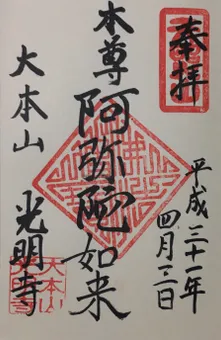 奉拝
平成三十一年
四月三日
本尊阿弥陀如来
大本山
光明寺
大本山
光明寺